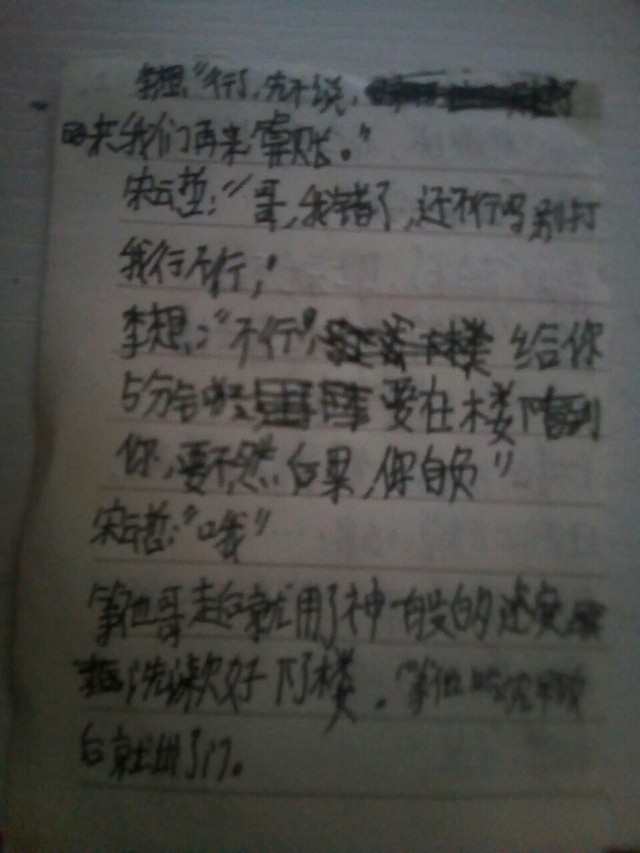 李想:"行了,先不说,
回来我们再来算账。"
宋云哲:"哥,我错了,还不行吗别打
我行不行,"
李想:"不行, 给你
5分钟 要在楼下看到
你,要不然,后果,你自负"
宋云哲:"哦"
等他哥走后就用了神一般的速度
洗漱好下了楼。等他吃完早饭
后就出了门。